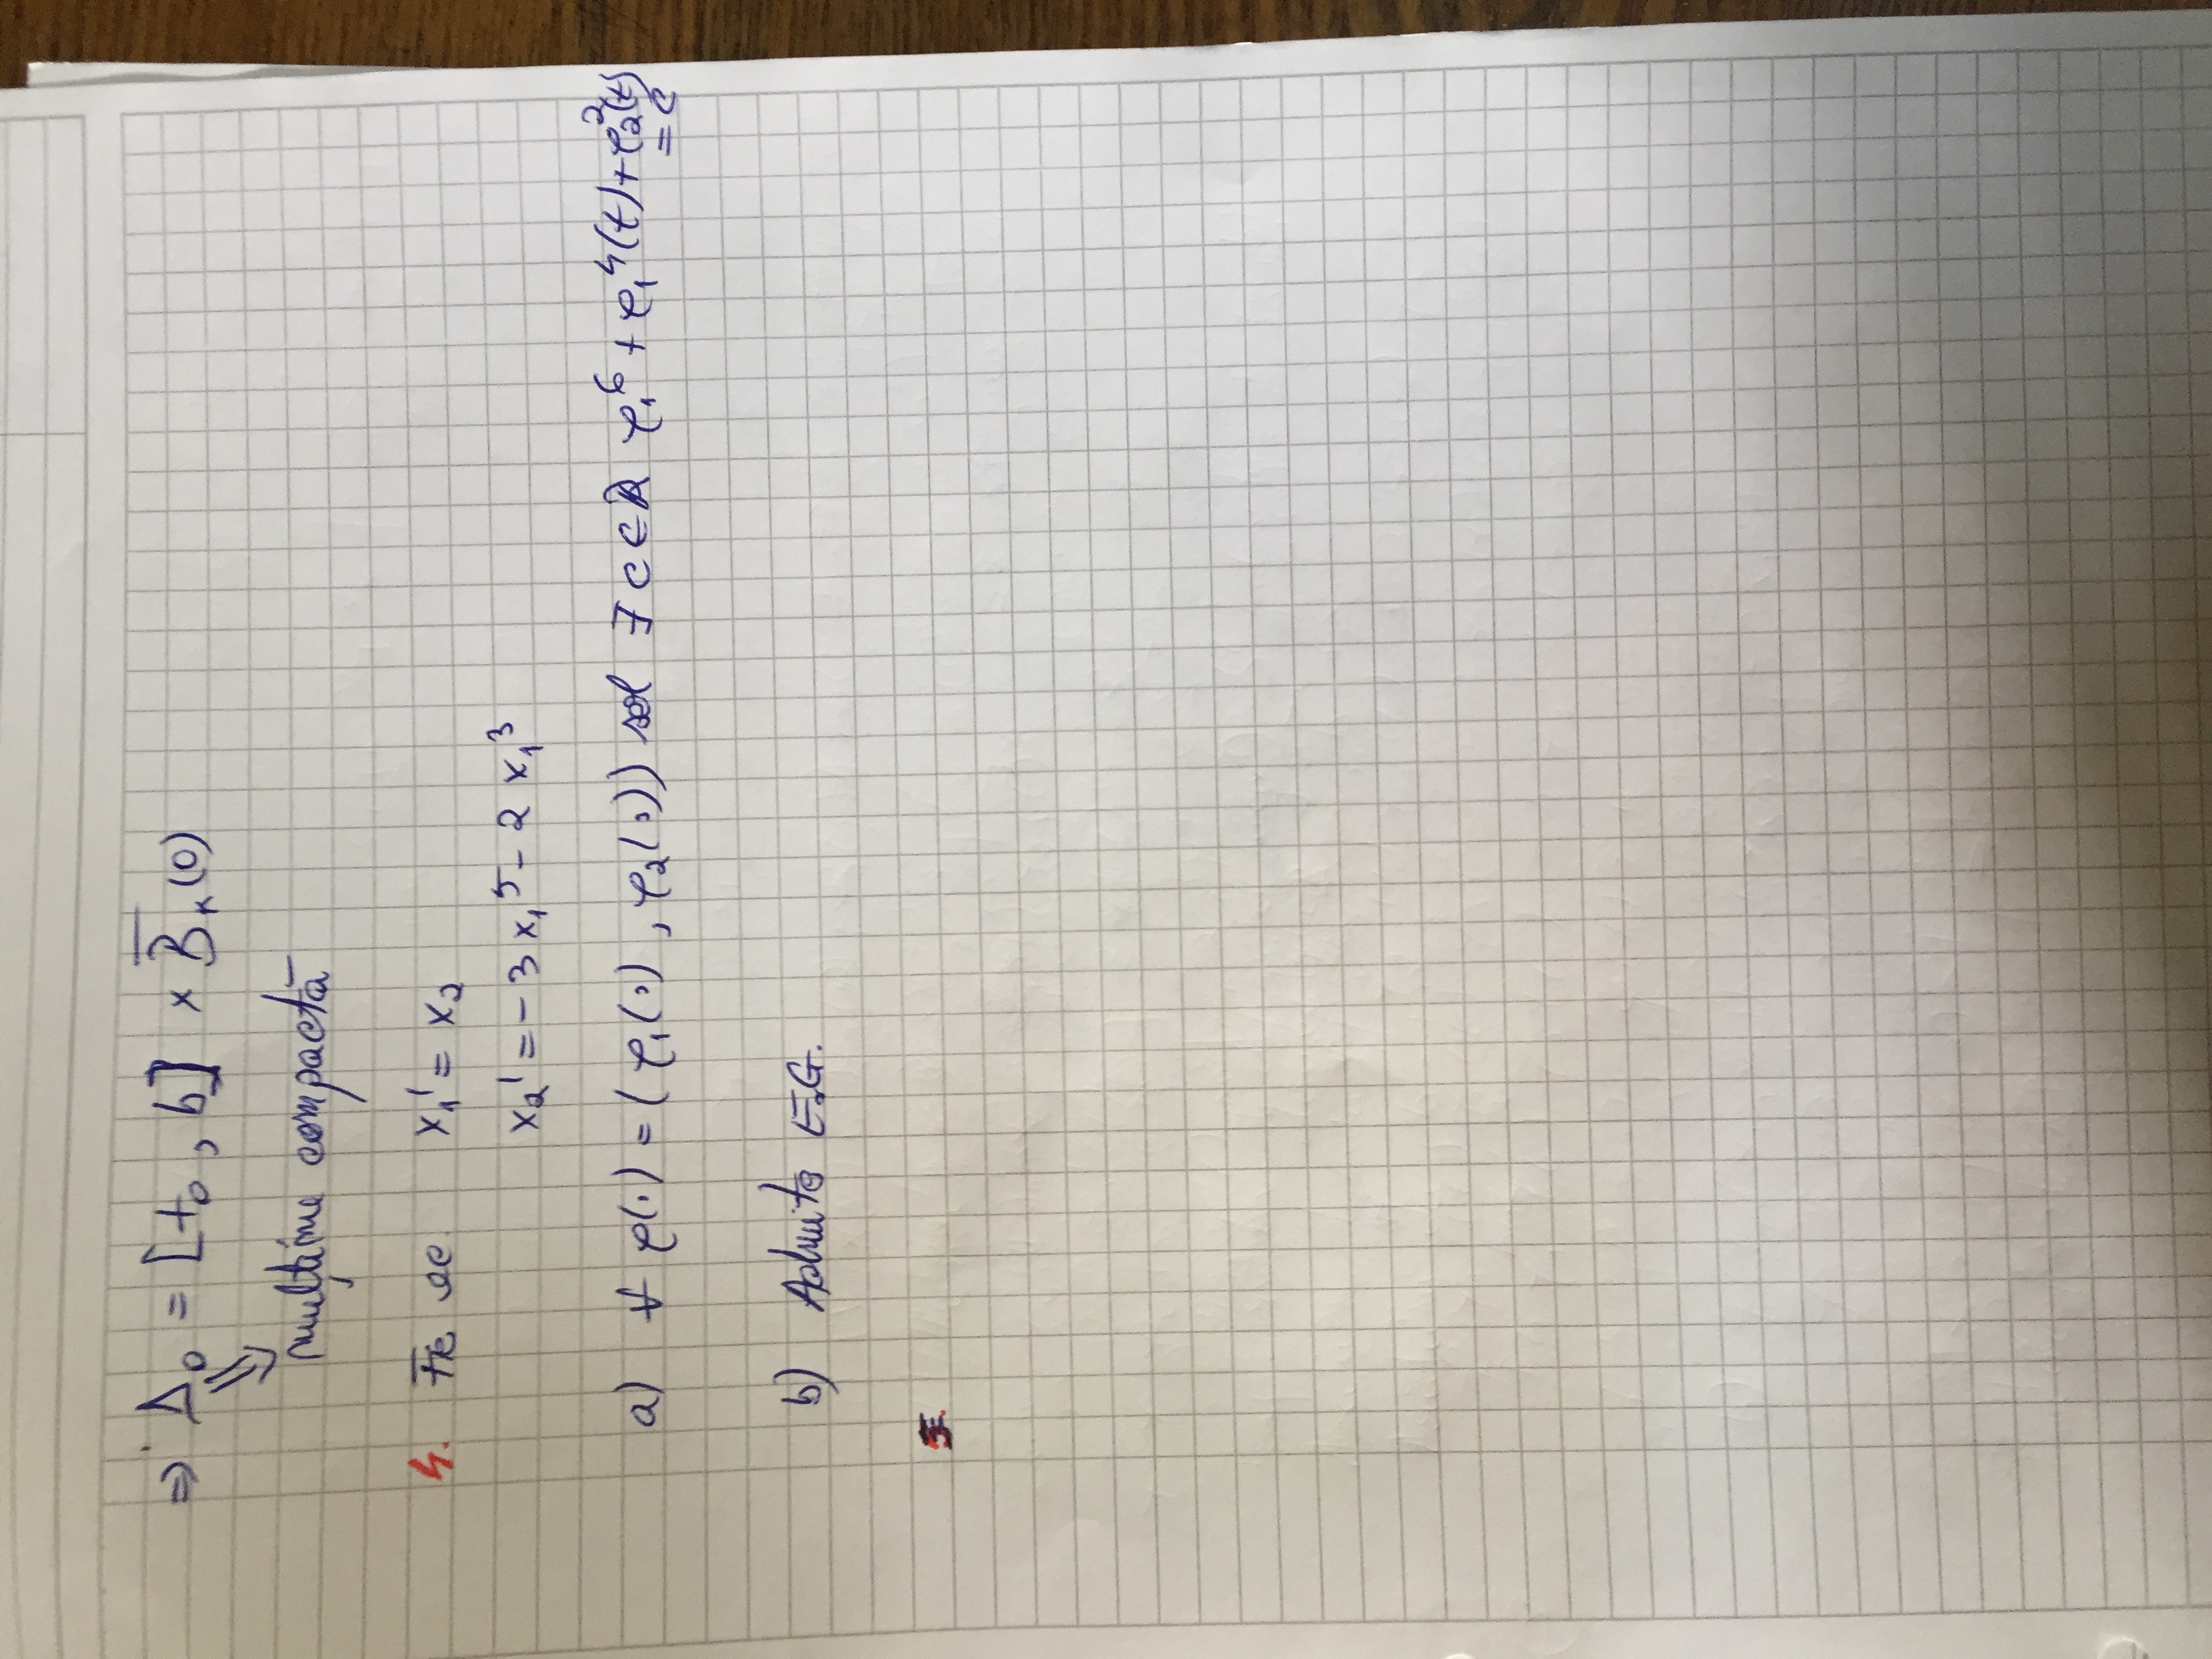 ⇒ Δ₀ = [t₀, b] × B̅ᵣ(0)
⇓
mulțime compactă
4. Fie ec. x₁' = x₂
x₂' = -3x₁⁵ - 2x₁³
a) ∀ φ(.) = (φ₁(.), φ₂(.)) sol ∃ c ∈ R φ₁⁶ + φ₁⁴(t) + φ₂²(t)
= c
b) Admite E.G.